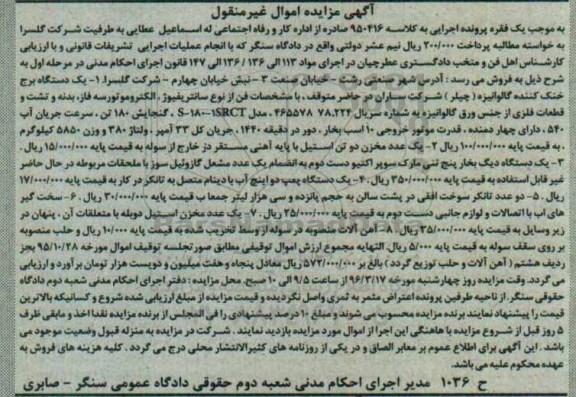 آگهی مزایده اموال غیرمنقول
به موجب یک فقره پرونده اجرایی به کلاسه ۹۵۰۴۱۶ صادره از اداره کار و رفاه اجتماعی له اسماعیل عطایی به طرفیت شرکت گلسرا
به خواسته مطالبه پرداخت ۲۰۰/۰۰۰ ریال نیم عشر دولتی واقع در دادگاه سنگر که با انجام عملیات اجرایی تشریفات قانونی و با ارزیابی
کارشناس اهل فن و منتخب دادگستری عطرچیان در اجرای مواد ۱۱۳ الی ۱۳۶ / ۱۳۶ الی ۱۴۷ قانون اجرای احکام مدنی در مرحله اول به
شرح ذیل به فروش می رسد : آدرس شهر صنعتی رشت - خیابان صنعت ۳ - نبش خیابان چهارم - شرکت گلسرا. ۱- یک دستگاه برج
خنک کننده گالوانیزه ( چیلر ) شرکت ساران در حاضر متوقف ، با مشخصات فن از نوع سانتریفیوژ ، الکتروموتور سه فاز، بدنه و تشت و
قطعات فلزی از جنس ورق گالوانیزه به شماره سریال ۷۸.۲۲۴ـ۴۶۵۵۷۸ ، مدل S-۱۸۰-۱SRCT ، گنجایش ۱۸۰ تن ، سرعت جریان آب
۵۴۰ ، دارای چهار دمنده ، قدرت موتور خروجی ۱۰ اسب بخار ، دور در دقیقه ۱۴۴۰ ، جریان کل ۳۳ آمپر ، ولتاژ ۳۸۰ و وزن ۵۸۵۰ کیلوگرم
، به قیمت پایه ۱۰۰/۰۰۰/۰۰۰ ریال ۲- یک عدد مخزن دو تن استیل با پایه آهنی مستقر در خارج از سوله به قیمت پایه ۱۵/۰۰۰/۰۰۰ ریال .
۳- یک دستگاه دیگ بخار پنج تنی مارک سوپر اکتیو دست دوم به انضمام یک عدد مشعل گازوئیل سوز با ملحقات مربوطه در حال حاضر
غیر قابل استفاده به قیمت پایه ۳۵۰/۰۰۰/۰۰۰ ریال . ۴- یک دستگاه پمپ دو اینچ آب با دینام متصل به تانکر در کار به قیمت پایه ۱۷/۰۰۰/۰۰۰
ریال . ۵- دو عدد تانکر سوخت افقی در پشت سالن به حجم پانزده و سی هزار لیتر جمعا ب قیمت پایه ۳۰/۰۰۰/۰۰۰ ریال . ۶- سخت گیر
های اب با اتصالات و لوازم جانبی دست دوم به قیمت پایه ۲۵/۰۰۰/۰۰۰ ریال . ۷- یک عدد مخزن استیل دوپله با متعلقات آن ، پنهان در
زیر وسایل به قیمت پایه ۳۵/۰۰۰/۰۰۰ ریال . ۸- آهن آلات منصوبه در سوله از وسط تخریب شده به قیمت پایه ۱۰/۰۰۰ ریال و حلب منصوبه
بر روی سقف سوله به قیمت پایه ۵/۰۰۰ ریال. النهایه مجموع ارزش اموال توقیفی مطابق صورتجلسه توقیف اموال مورخه ۹۵/۱۰/۲۸ بجز
ردیف هشتم ( آهن آلات و حلب توزیع گردد ) بالغ بر ۵۷۲/۰۰۰/۰۰۰ ریال معادل پنجاه و هفت میلیون و دویست هزار تومان برآورد و ارزیابی
می گردد. وقت مزایده روز چهارشنبه مورخه ۹۶/۳/۱۷ از ساعت ۹/۵ الی ۱۰ صبح. محل مزایده : دفتر اجرای احکام مدنی شعبه دوم دادگاه
حقوقی سنگر. از ناحیه طرفین پرونده اعتراض مثمر به ثمری واصل نگردیده و قیمت مزایده از مبلغ ارزیابی شده شروع و کسانیکه بالاترین
قیمت را پیشنهاد نمایند برنده مزایده محسوب می شوند و مبلغ ۱۰ درصد پیشنهادی را فی المجلس از برنده مزایده نقدا اخذ و مابقی ظرف
۵ روز قبل از شروع مزایده با هماهنگی این اجرا از اموال مورد مزایده بازدید نمایند . شرکت در مزایده به منزله قبول وضعیت موجود می
باشد . این آگهی برای اطلاع عموم بر معابر الصاق و در یکی از روزنامه های کثیرالانتشار محلی درج می گردد . کلیه هزینه های فروش به
عهده محکوم علیه می باشد.
ح ۱۰۳۶ مدیر اجرای احکام مدنی شعبه دوم حقوقی دادگاه عمومی سنگر - صابری